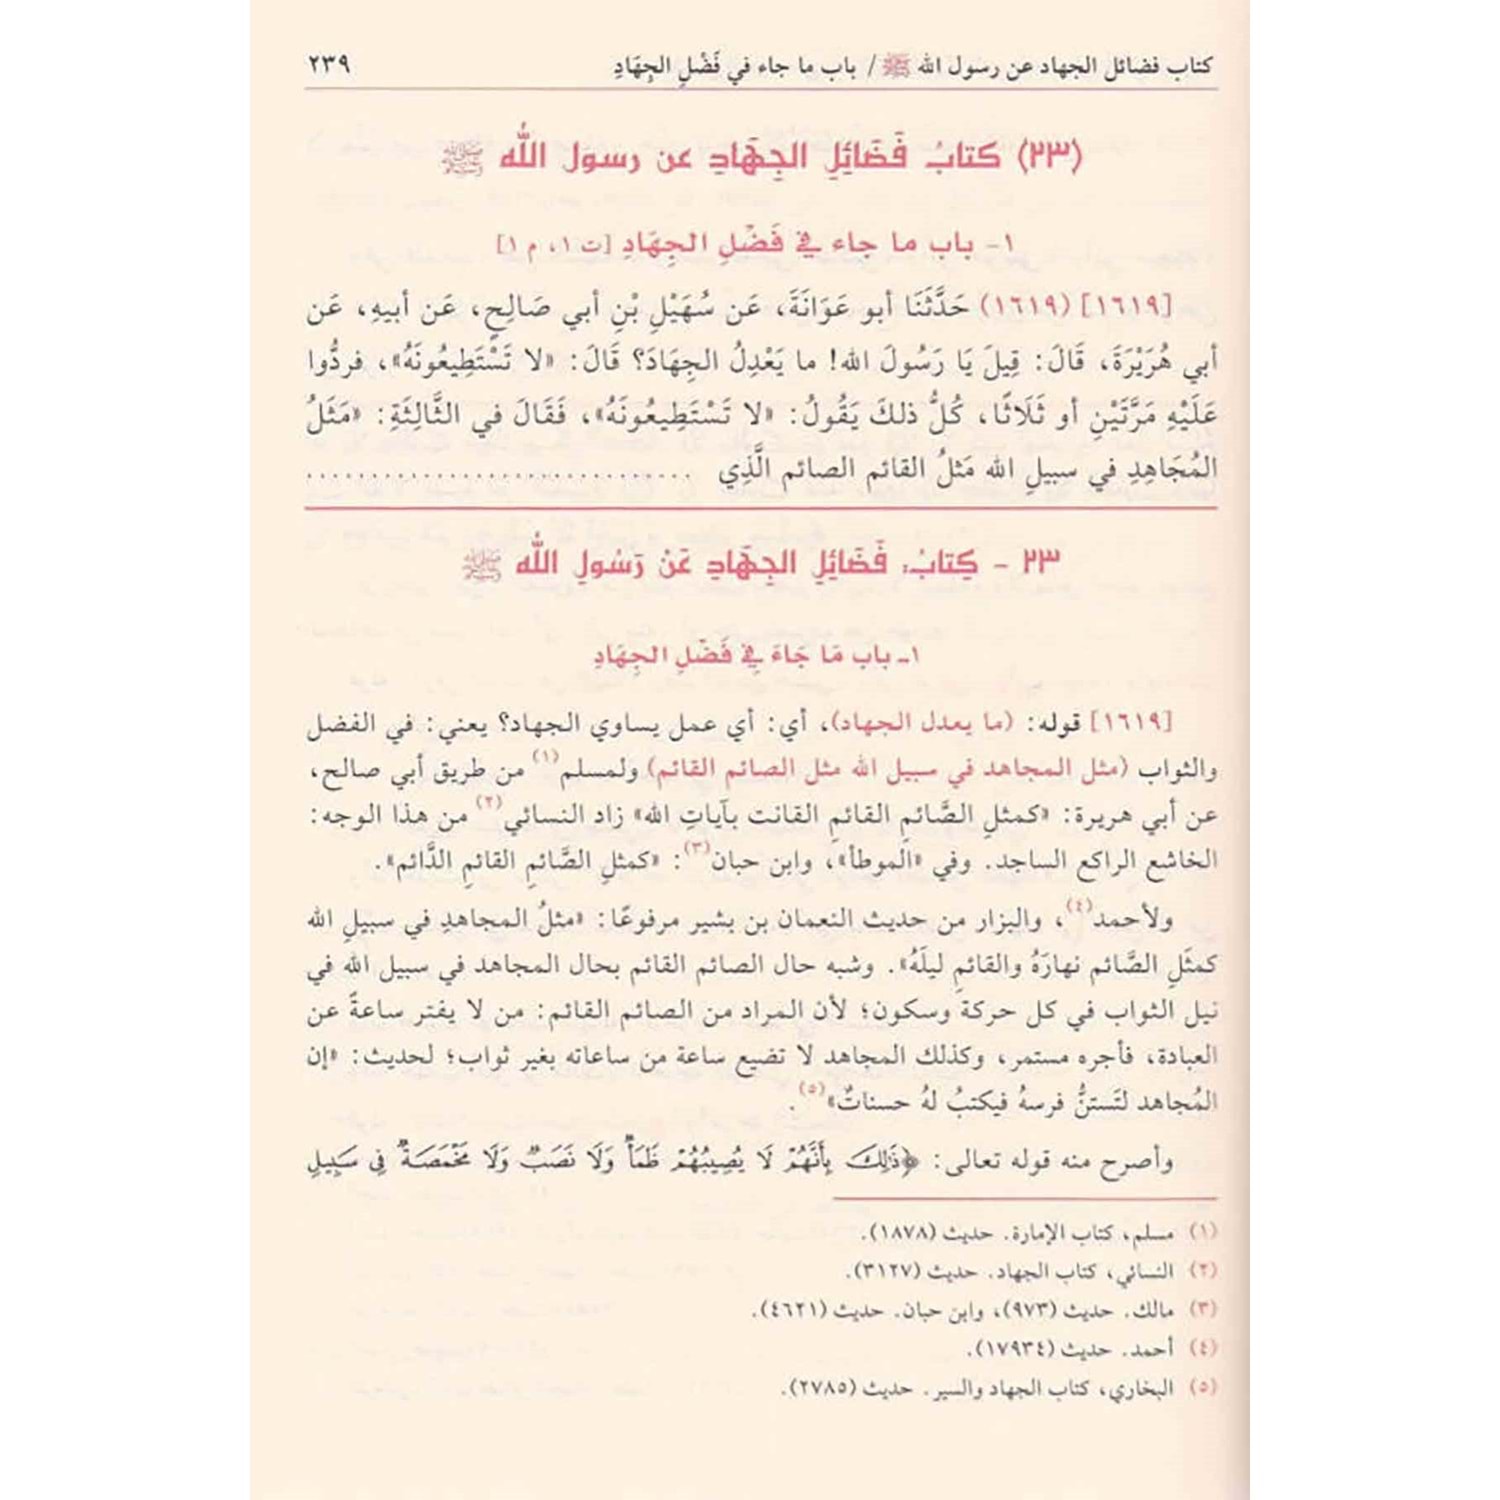 كتاب فضائل الجهاد عن رسول الله ﷺ / باب ما جاء في فَضْلِ الجِهَادِ ٢٣٩
(٢٣) كتابُ فَضَائِلِ الجِهَادِ عن رسول الله ﷺ
١- باب ما جاء في فَضْلِ الجِهَادِ [ت ١، م ١]
[١٦١٩] (١٦١٩) حَدَّثَنَا أبو عَوَانَةَ، عَن سُهَيْلِ بْنِ أبي صَالِحٍ، عَن أبيهِ، عَن
أبي هُرَيْرَةَ، قَالَ: قِيلَ يَا رَسُولَ الله! ما يَعْدِلُ الجِهَادَ؟ قَالَ: «لا تَسْتَطِيعُونَهُ»، فردُّوا
عَلَيْهِ مَرَّتَيْنِ أو ثَلَاثًا، كُلُّ ذلكَ يَقُولُ: «لا تَسْتَطِيعُونَهُ»، فَقَالَ في الثَّالِثَةِ: «مَثَلُ
المُجَاهِدِ في سبيلِ الله مَثلُ القائم الصائم الَّذِي ..............................
٢٣ - كِتابُ: فَضَائِلِ الجِهَادِ عَنْ رَسُولِ اللَّه ﷺ
١ـ باب مَا جَاءَ في فَضْلِ الجِهَادِ
[١٦١٩] قوله: (ما يعدل الجهاد)، أي: أي عمل يساوي الجهاد؟ يعني: في الفضل
والثواب (مثل المجاهد في سبيل الله مثل الصائم القائم) ولمسلم(١) من طريق أبي صالح،
عن أبي هريرة: «كمثلِ الصَّائمِ القائمِ القانت بآياتِ الله» زاد النسائي(٢) من هذا الوجه:
الخاشع الراكع الساجد. وفي «الموطأ»، وابن حبان(٣): «كمثلِ الصَّائمِ القائمِ الدَّائم».
ولأحمد(٤)، والبزار من حديث النعمان بن بشير مرفوعًا: «مثلُ المجاهدِ في سبيلِ الله
كمثَلِ الصَّائم نهارَهُ والقائمِ ليلَهُ». وشبه حال الصائم القائم بحال المجاهد في سبيل الله في
نيل الثواب في كل حركة وسكون؛ لأن المراد من الصائم القائم: من لا يفتر ساعةً عن
العبادة، فأجره مستمر، وكذلك المجاهد لا تضيع ساعة من ساعاته بغير ثواب؛ لحديث: «إن
المُجاهد لتَستنُّ فرسهُ فيكتبُ لهُ حسناتٌ»(٥).
وأصرح منه قوله تعالى: ﴿ذَٰلِكَ بِأَنَّهُمْ لَا يُصِيبُهُمْ ظَمَأٌ وَلَا نَصَبٌ وَلَا مَخْمَصَةٌ فِي سَبِيلِ
(١) مسلم، كتاب الإمارة. حديث (١٨٧٨).
(٢) النسائي، كتاب الجهاد. حديث (٣١٢٧).
(٣) مالك. حديث (٩٧٣)، وابن حبان. حديث (٤٦٢١).
(٤) أحمد. حديث (١٧٩٣٤).
(٥) البخاري، كتاب الجهاد والسير. حديث (٢٧٨٥).